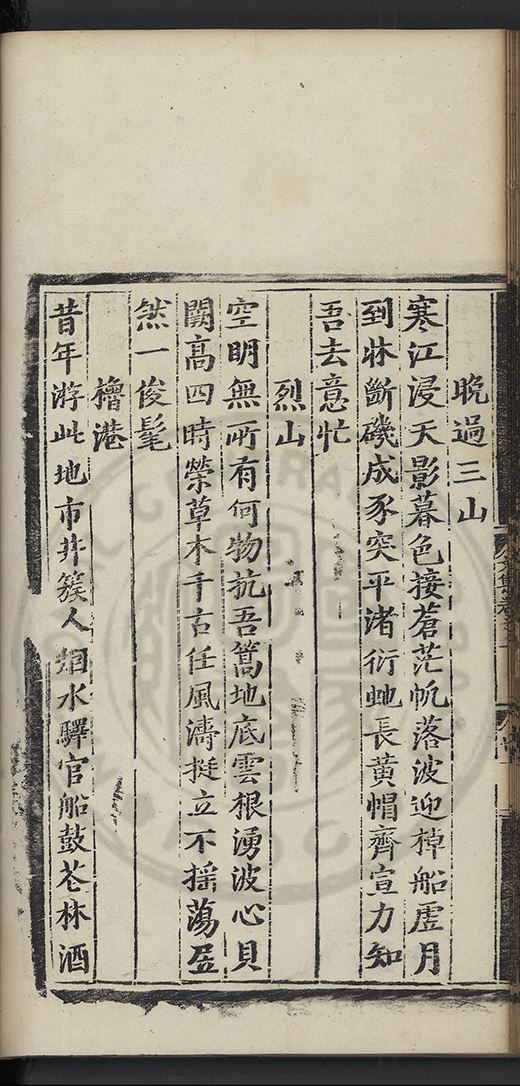 晚過三山
寒江浸天影暮色接蒼茫帆落波迎棹船虛月
到牀斷磯成豕突平渚衍虵長黃帽齊宣力知
吾去意忙
烈山
空明無所有何物抗吾篙地底雲根湧波心貝
闕高四時榮草木千古任風濤挺立不搖蕩居
然一俊髦
櫓港
昔年游此地市井簇人烟水驛官船鼓花林酒